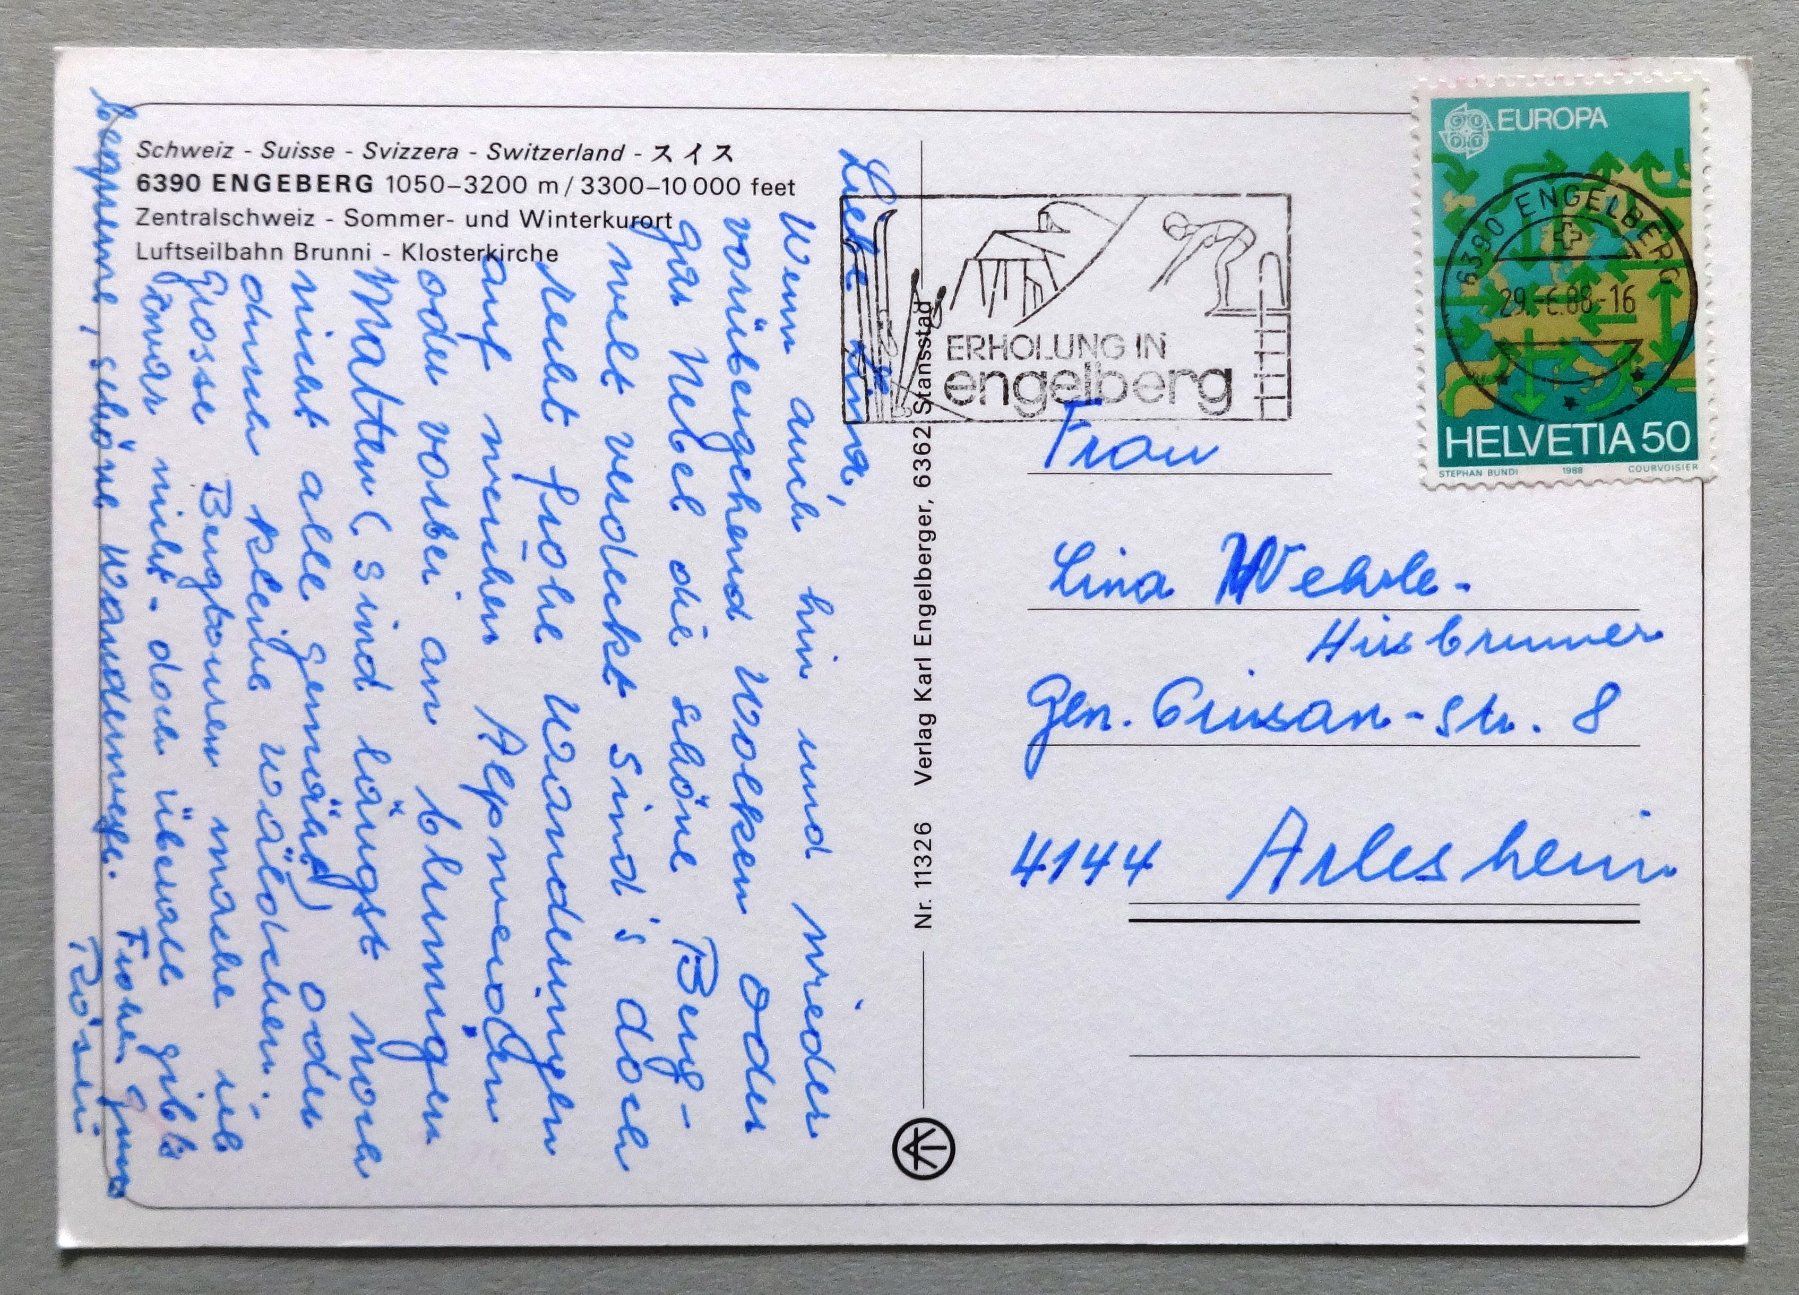 Schweiz - Suisse - Svizzera - Switzerland - スイス
6390 ENGEBERG 1050–3200 m / 3300–10 000 feet
Zentralschweiz - Sommer- und Winterkurort
Luftseilbahn Brunni - Klosterkirche
Liebe Lina,
Wenn auch hin und wieder
vorübergehend Wolken oder
gar Nebel die schöne Berg-
welt verdeckt sind's doch
recht frohe Wanderungen
auf weichen Alpweiden
oder vorbei an blumigen
Matten (sind längst noch
nicht alle gemäht) oder
durch kleine Wäldchen.
Grosse Bergtouren mache ich
zwar nicht - doch überall gibt's
bequeme, schöne Wanderwege. Frohen Gruss
Rösli
Nr. 11326 Verlag Karl Engelberger, 6362 Stansstad
ERHOLUNG IN
engelberg
EUROPA
CEPT
6390 ENGELBERG
29.-6.88-16
HELVETIA 50
STEPHAN BUNDI 1988 COURVOISIER
Frau
Lina Wehrle-
Hirsbrunner
Gen. Guisan-Str. 8
4144 Arlesheim